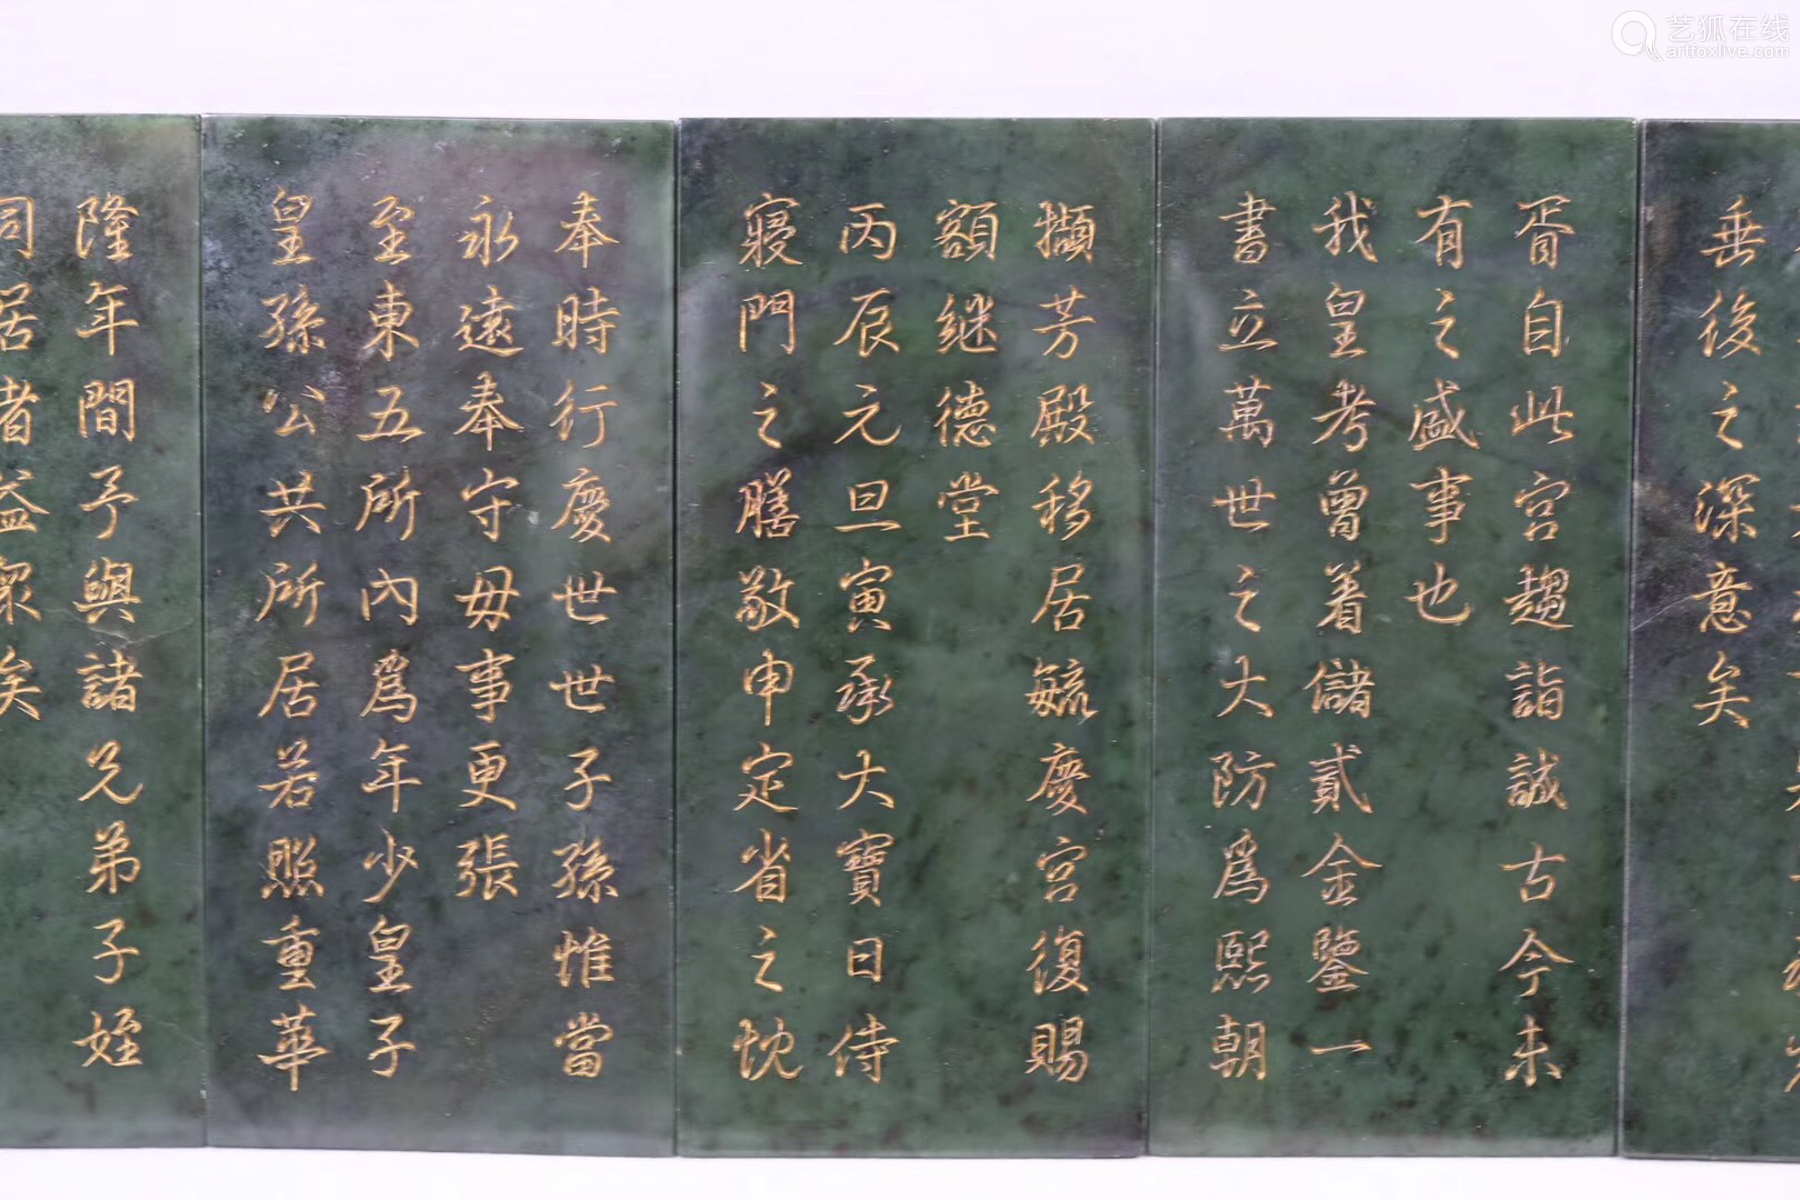 艺狐在线
artfoxlive.com
垂後之深意矣
胥自此宮趨詣誠古今未
有之盛事也
我皇考曾着儲貳金鑒一
書立萬世之大防爲熙朝
擷芳殿移居毓慶宮復賜
額継德堂
丙辰元旦寅承大寶日侍
寢門之膳敬申定省之忱
奉時行慶世世子孫惟當
永遠奉守毋事更張
至東五所內爲年少皇子
皇孫公共所居若照重華
隆年間予與諸兄弟子姪
同居者益衆矣